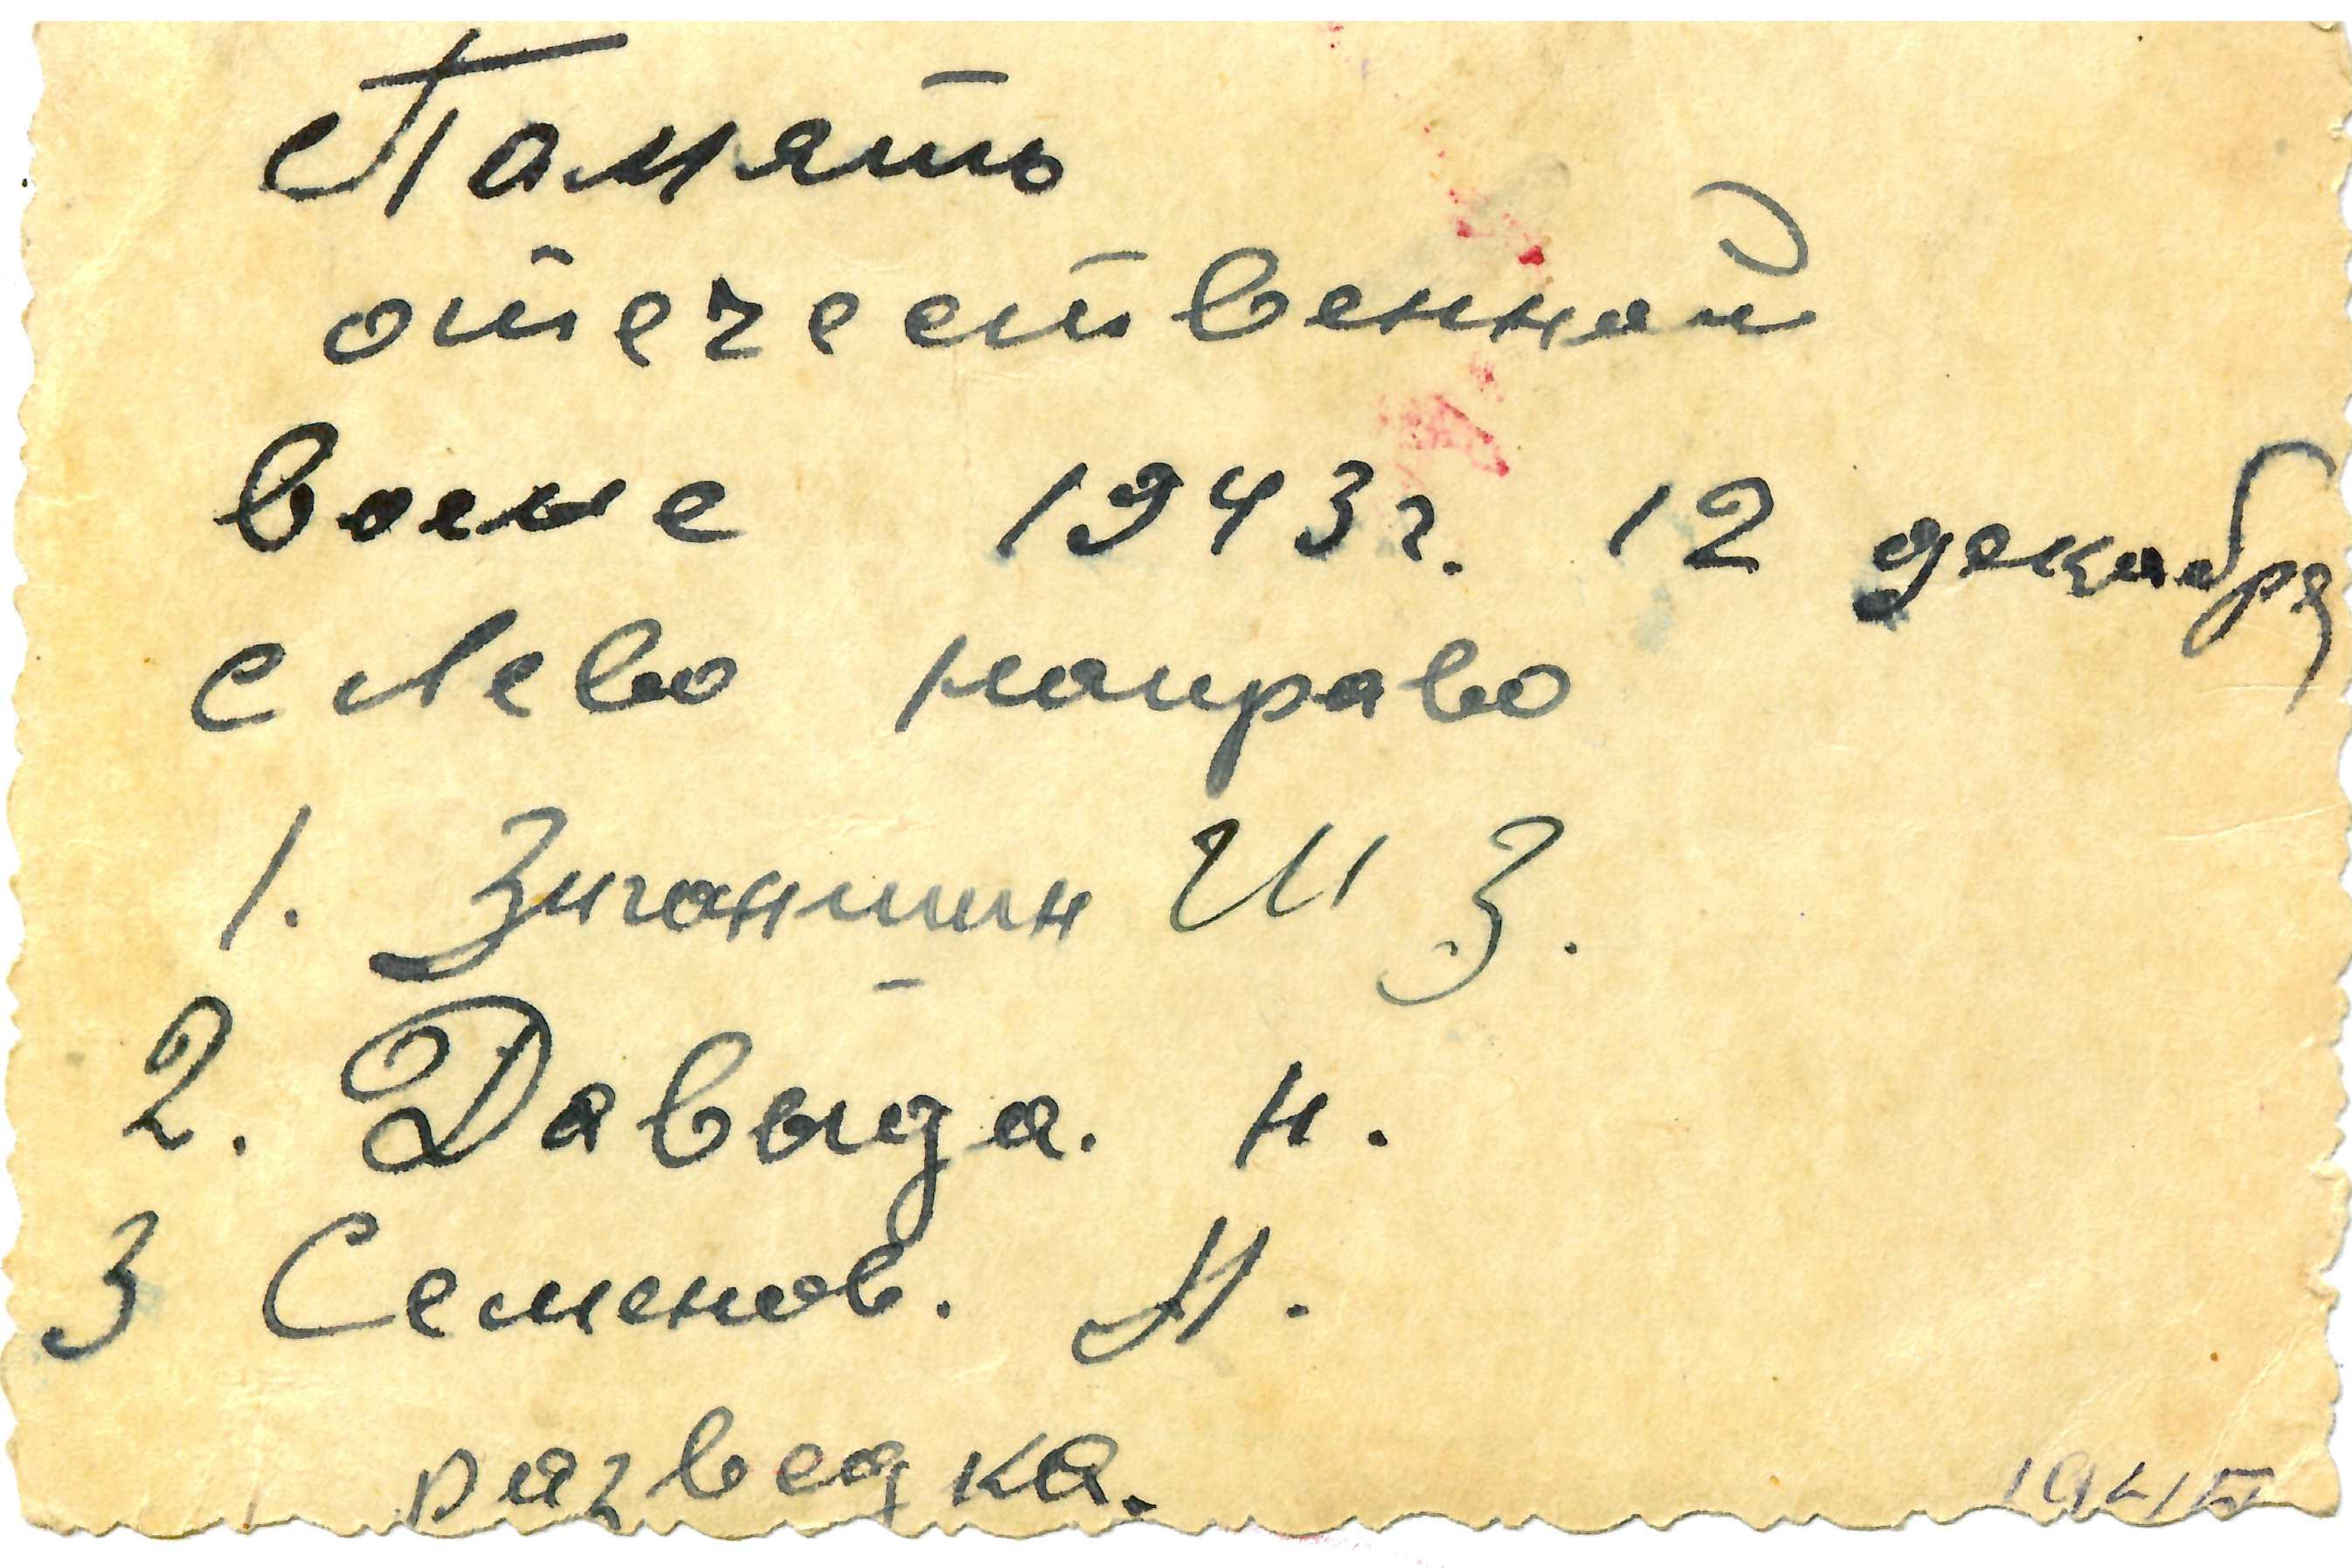 Память
отечественной
воене 1943г. 12 декабря
с лево направо
1. Зиганшин Ш З.
2. Давыда. н.
3 Семенов. М.
разведка.